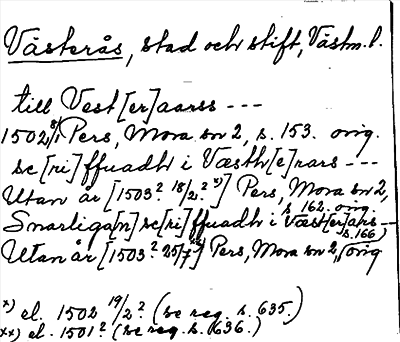 Västerås, stad och stift, Västm. l.
till Vest[er]aarss ---
1502 8/1 Pers, Mora sn 2, s. 153. orig.
sc[ri]ffuadh i Væsth[e]rars ---
Utan år [1503? 18/2? x)] Pers, Mora sn 2, s. 162. orig.
Snarliga[n] sc[ri]ffuadh i Væst[er]ars ---
Utan år [1503? 25/7 xx)] Pers, Mora sn 2, s. 166) orig
x) el. 1502 19/2? (se reg. s. 635.)
xx) el. 1501? (se reg. s. 636.)